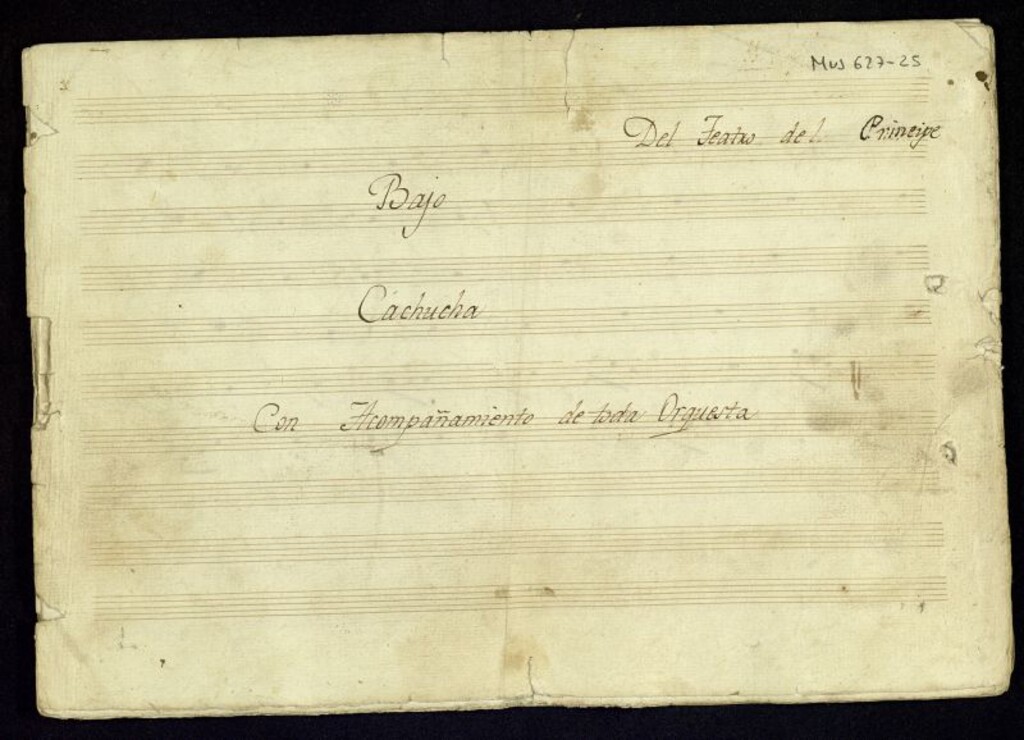 Mus 627-25
Del Teatro del Principe
Bajo
Cachucha
Con Acompañamiento de toda Orquesta